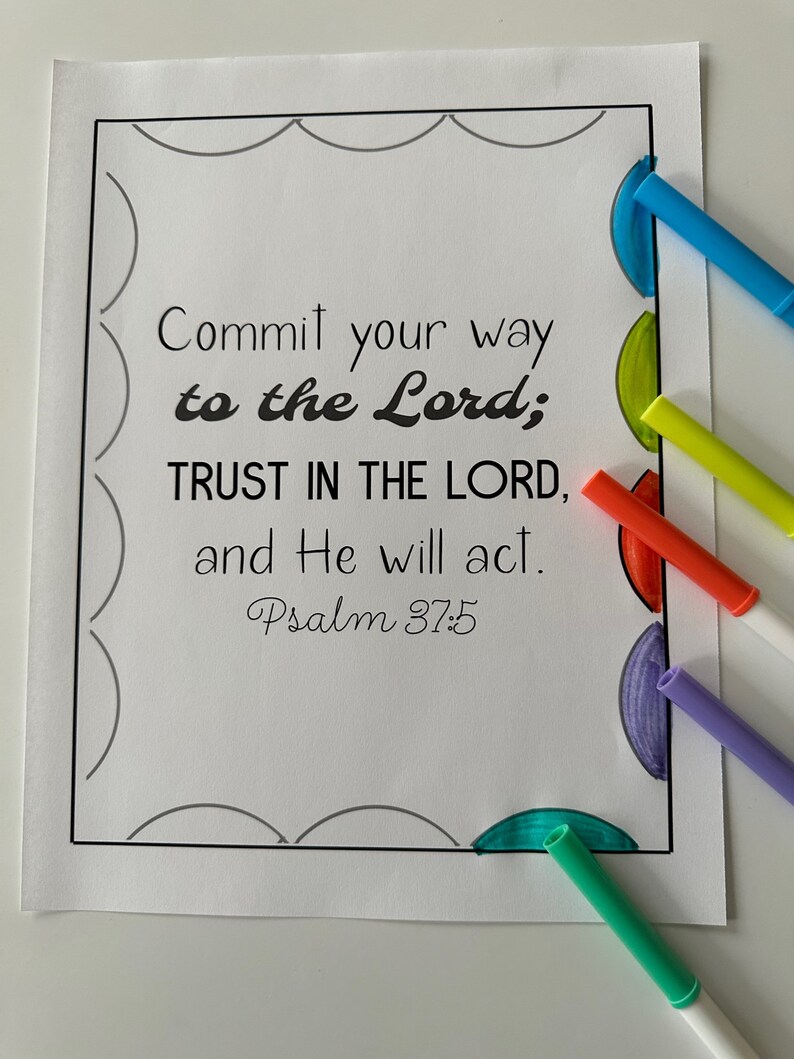 Commit your way
to the Lord;
TRUST IN THE LORD,
and He will act.
Psalm 37:5